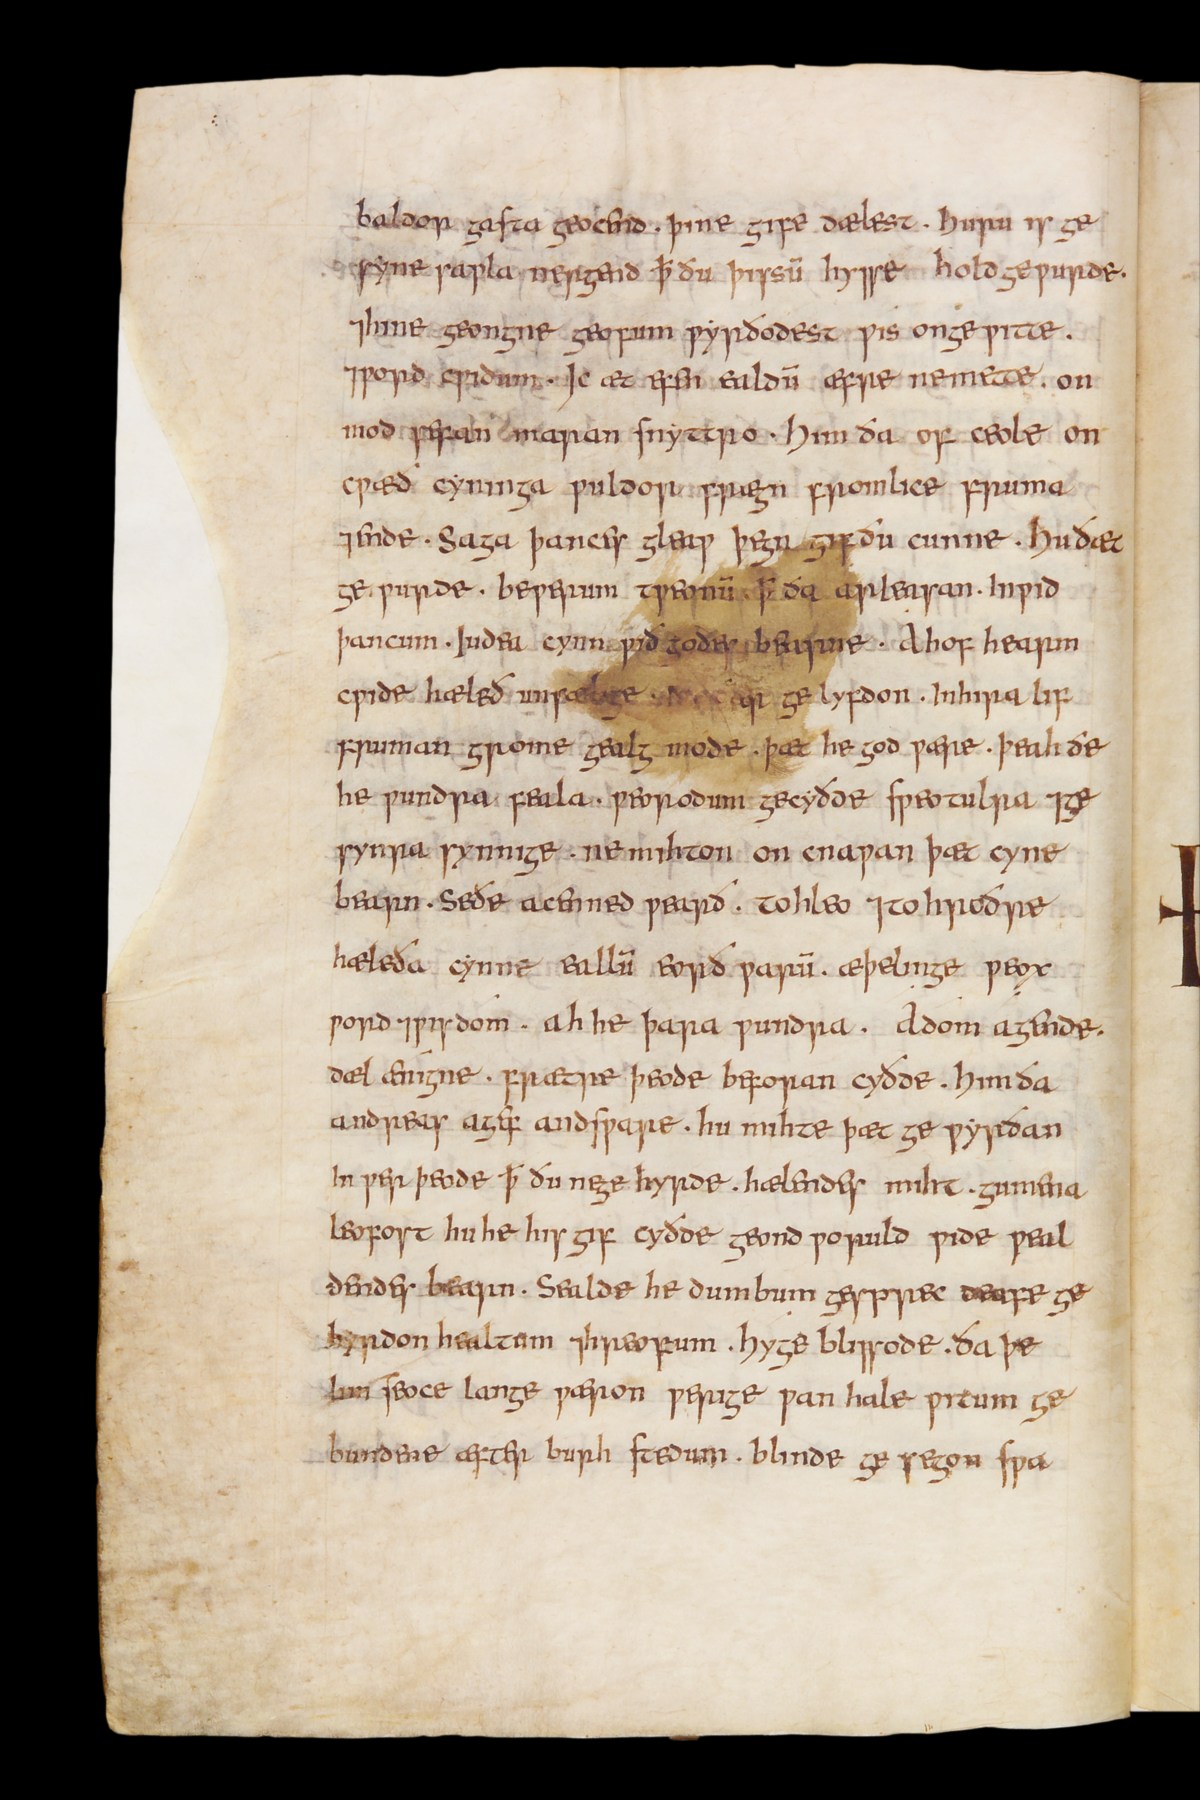 baldor gasta geocend · þine gife dælest · huru is ge
syne sapla nergend ꝥ ðu þissū hysse hold gepurde ·
⁊hine geongne geofum pyrðodest pis on gepitte ·
⁊pord cpidum · Ic æt efen ealdū æfre ne mette · on
mod sefan maran snyttro · Him ða of ceole on
cpæð cyninga puldor frægn fromlice fruma
⁊ende · Saga þances gleap þegn gif ðu cunne · Hu ðæt
ge purde · be perum tpeonū · ꝥ ða arleasan · In pid
þancum · Iudea cynn pið godes bearne · Ahof hearm
cpide hæleð unsælige · ge lyfdon · In hira lif
fruman grome gealg mode · þæt he god pære · þeah ðe
he pundra feala · peorodum gecyðde speotulra ⁊ge
synra synnige · ne mihton on cnapan þæt cyne
bearn · Seðe acenned pearð · to hleo ⁊to hroðre
hæleða cynne eallū eorð parū · æþelinge peox
pord ⁊pisdom · ah he þara pundra · A dom agende ·
dæl ænigne · frætre þeode beforan cyðde · Him ða
andreas agef andspare · hu mihte þæt ge pyrðan
In per þeode ꝥ ðu ne ge hyrde · hælendes miht · gumena
leofost hu he his gif cyðde geond poruld pide peal
dendes bearn · Sealde he dumbum gesprec deafe ge
hyrdon healtum ⁊hreofum · hyge blissode · ða þe
lim seoce lange pæron perige pan hale pitum ge
bundene æfter burh stedum · blinde ge segon spa